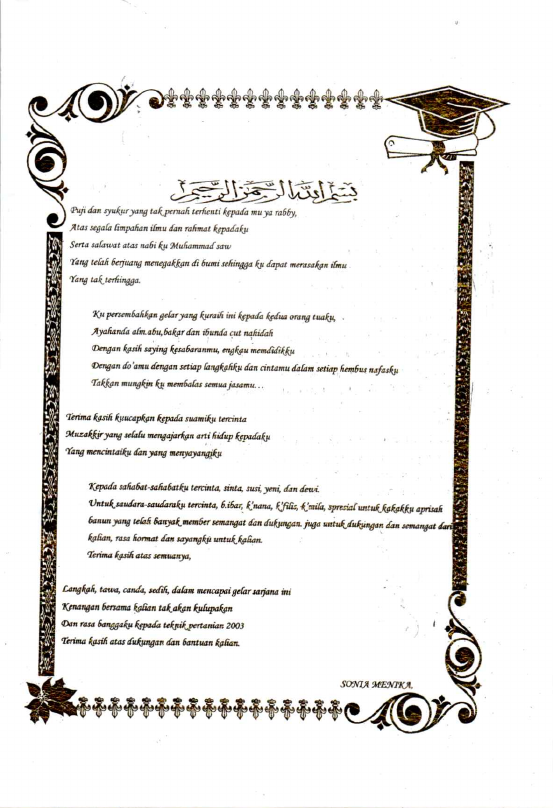 بسم الله الرحمن الرحيم
Puji dan syukur yang tak pernah terhenti kepada mu ya rabby,
Atas segala limpahan ilmu dan rahmat kepadaku
Serta salawat atas nabi ku Muhammad saw
Yang telah berjuang menegakkan di bumi sehingga ku dapat merasakan ilmu
Yang tak terhingga.
Ku persembahkan gelar yang kuraih ini kepada kedua orang tuaku,
Ayahanda alm.abu,bakar dan ibunda cut nahidah
Dengan kasih saying kesabaranmu, engkau memdidikku
Dengan do'amu dengan setiap langkahku dan cintamu dalam setiap hembus nafasku
Takkan mungkin ku membalas semua jasamu...
Terima kasih kuucapkan kepada suamiku tercinta
Muzakkir yang selalu mengajarkan arti hidup kepadaku
Yang mencintaiku dan yang menyayangiku
Kepada sahabat-sahabatku tercinta, sinta, susi, yeni, dan dewi.
Untuk saudara-saudaraku tercinta, b.ibar, k'nana, k'filis, k'mila, spresial untuk kakakku aprisah
banun yang telah banyak member semangat dan dukungan. juga untuk dukungan dan semangat dari
kalian, rasa hormat dan sayangku untuk kalian.
Terima kasih atas semuanya,
Langkah, tawa, canda, sedih, dalam mencapai gelar sarjana ini
Kenangan bersama kalian tak akan kulupakan
Dan rasa banggaku kepada teknik pertanian 2003
Terima kasih atas dukungan dan bantuan kalian.
SONIA MENIKA,